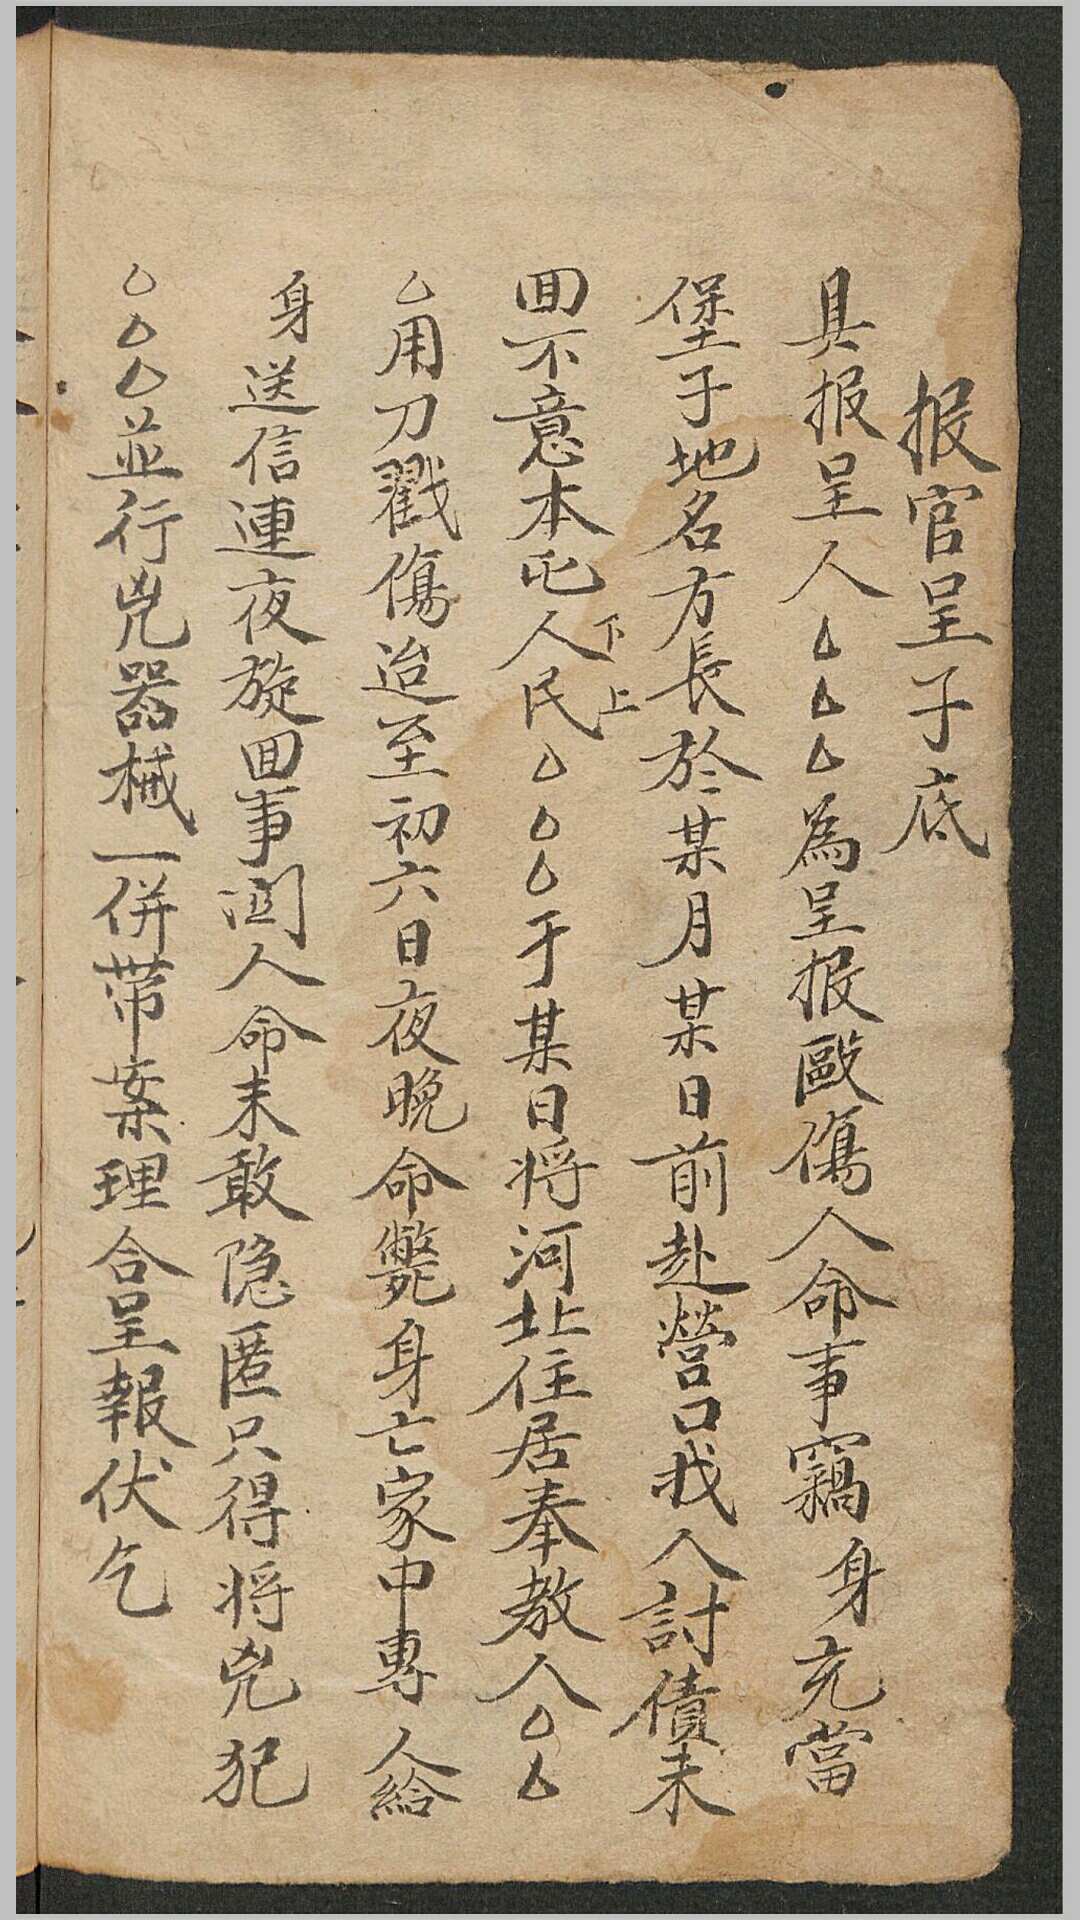 报官呈子底
具报呈人△△△為呈报毆傷人命事竊身充當
堡子地名方長於某月某日前赴營口找人討債未
囬不意本屯人民△△△于某日将河北住居奉教人△△
下上
△用刀戳傷迨至初六日夜晚命斃身亡家中專人給
身送信連夜旋囬事関人命未敢隐匿只得将兇犯
△△△並行兇器械一併带案理合呈報伏乞